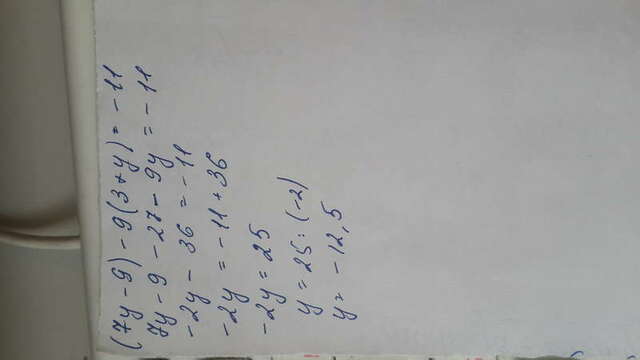 (7y - 9) - 9(3+y) = -11
7y - 9 - 27 - 9y = -11
-2y - 36 = -11
-2y = -11 + 36
-2y = 25
y = 25 : (-2)
y = -12,5